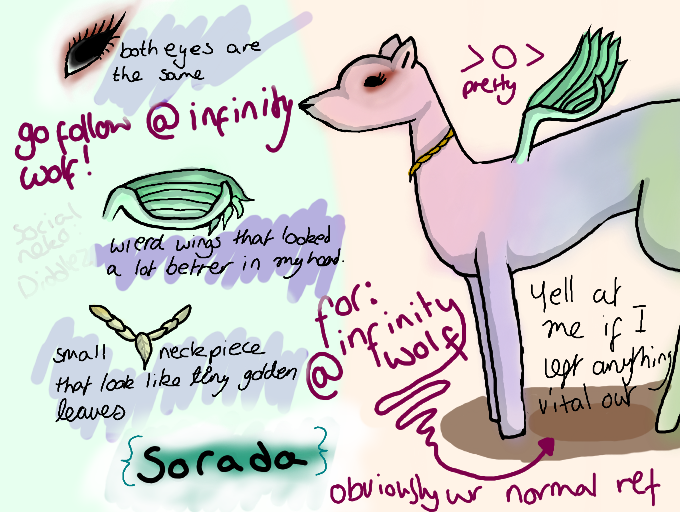 both eyes are
the same
go follow @infinity
wolf!
> O >
pretty
wierd wings that looked
a lot better in my head.
Social
neko
small neckpiece
that look like tiny golden
leaves
for:
@infinity
wolf
Yell at
me if I
left anything
vital out
{Sorada}
obviously ur normal ref